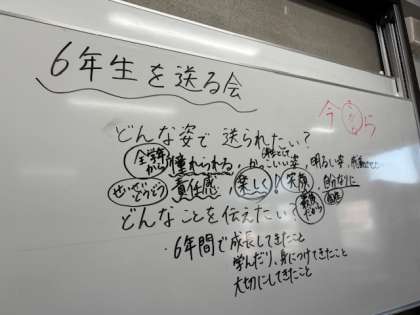 6年生を送る会
今 ら
どんな姿で 送られたい?
全学年から 憧れられる, かっこいい姿, 明るい姿,
せいせいどうどう 責任感, 楽しく 笑顔, 自分なりに
どんなことを伝えたい? 最後だから
・6年間で成長してきたこと
学んだり、身につけてきたこと
大切にしてきたこと